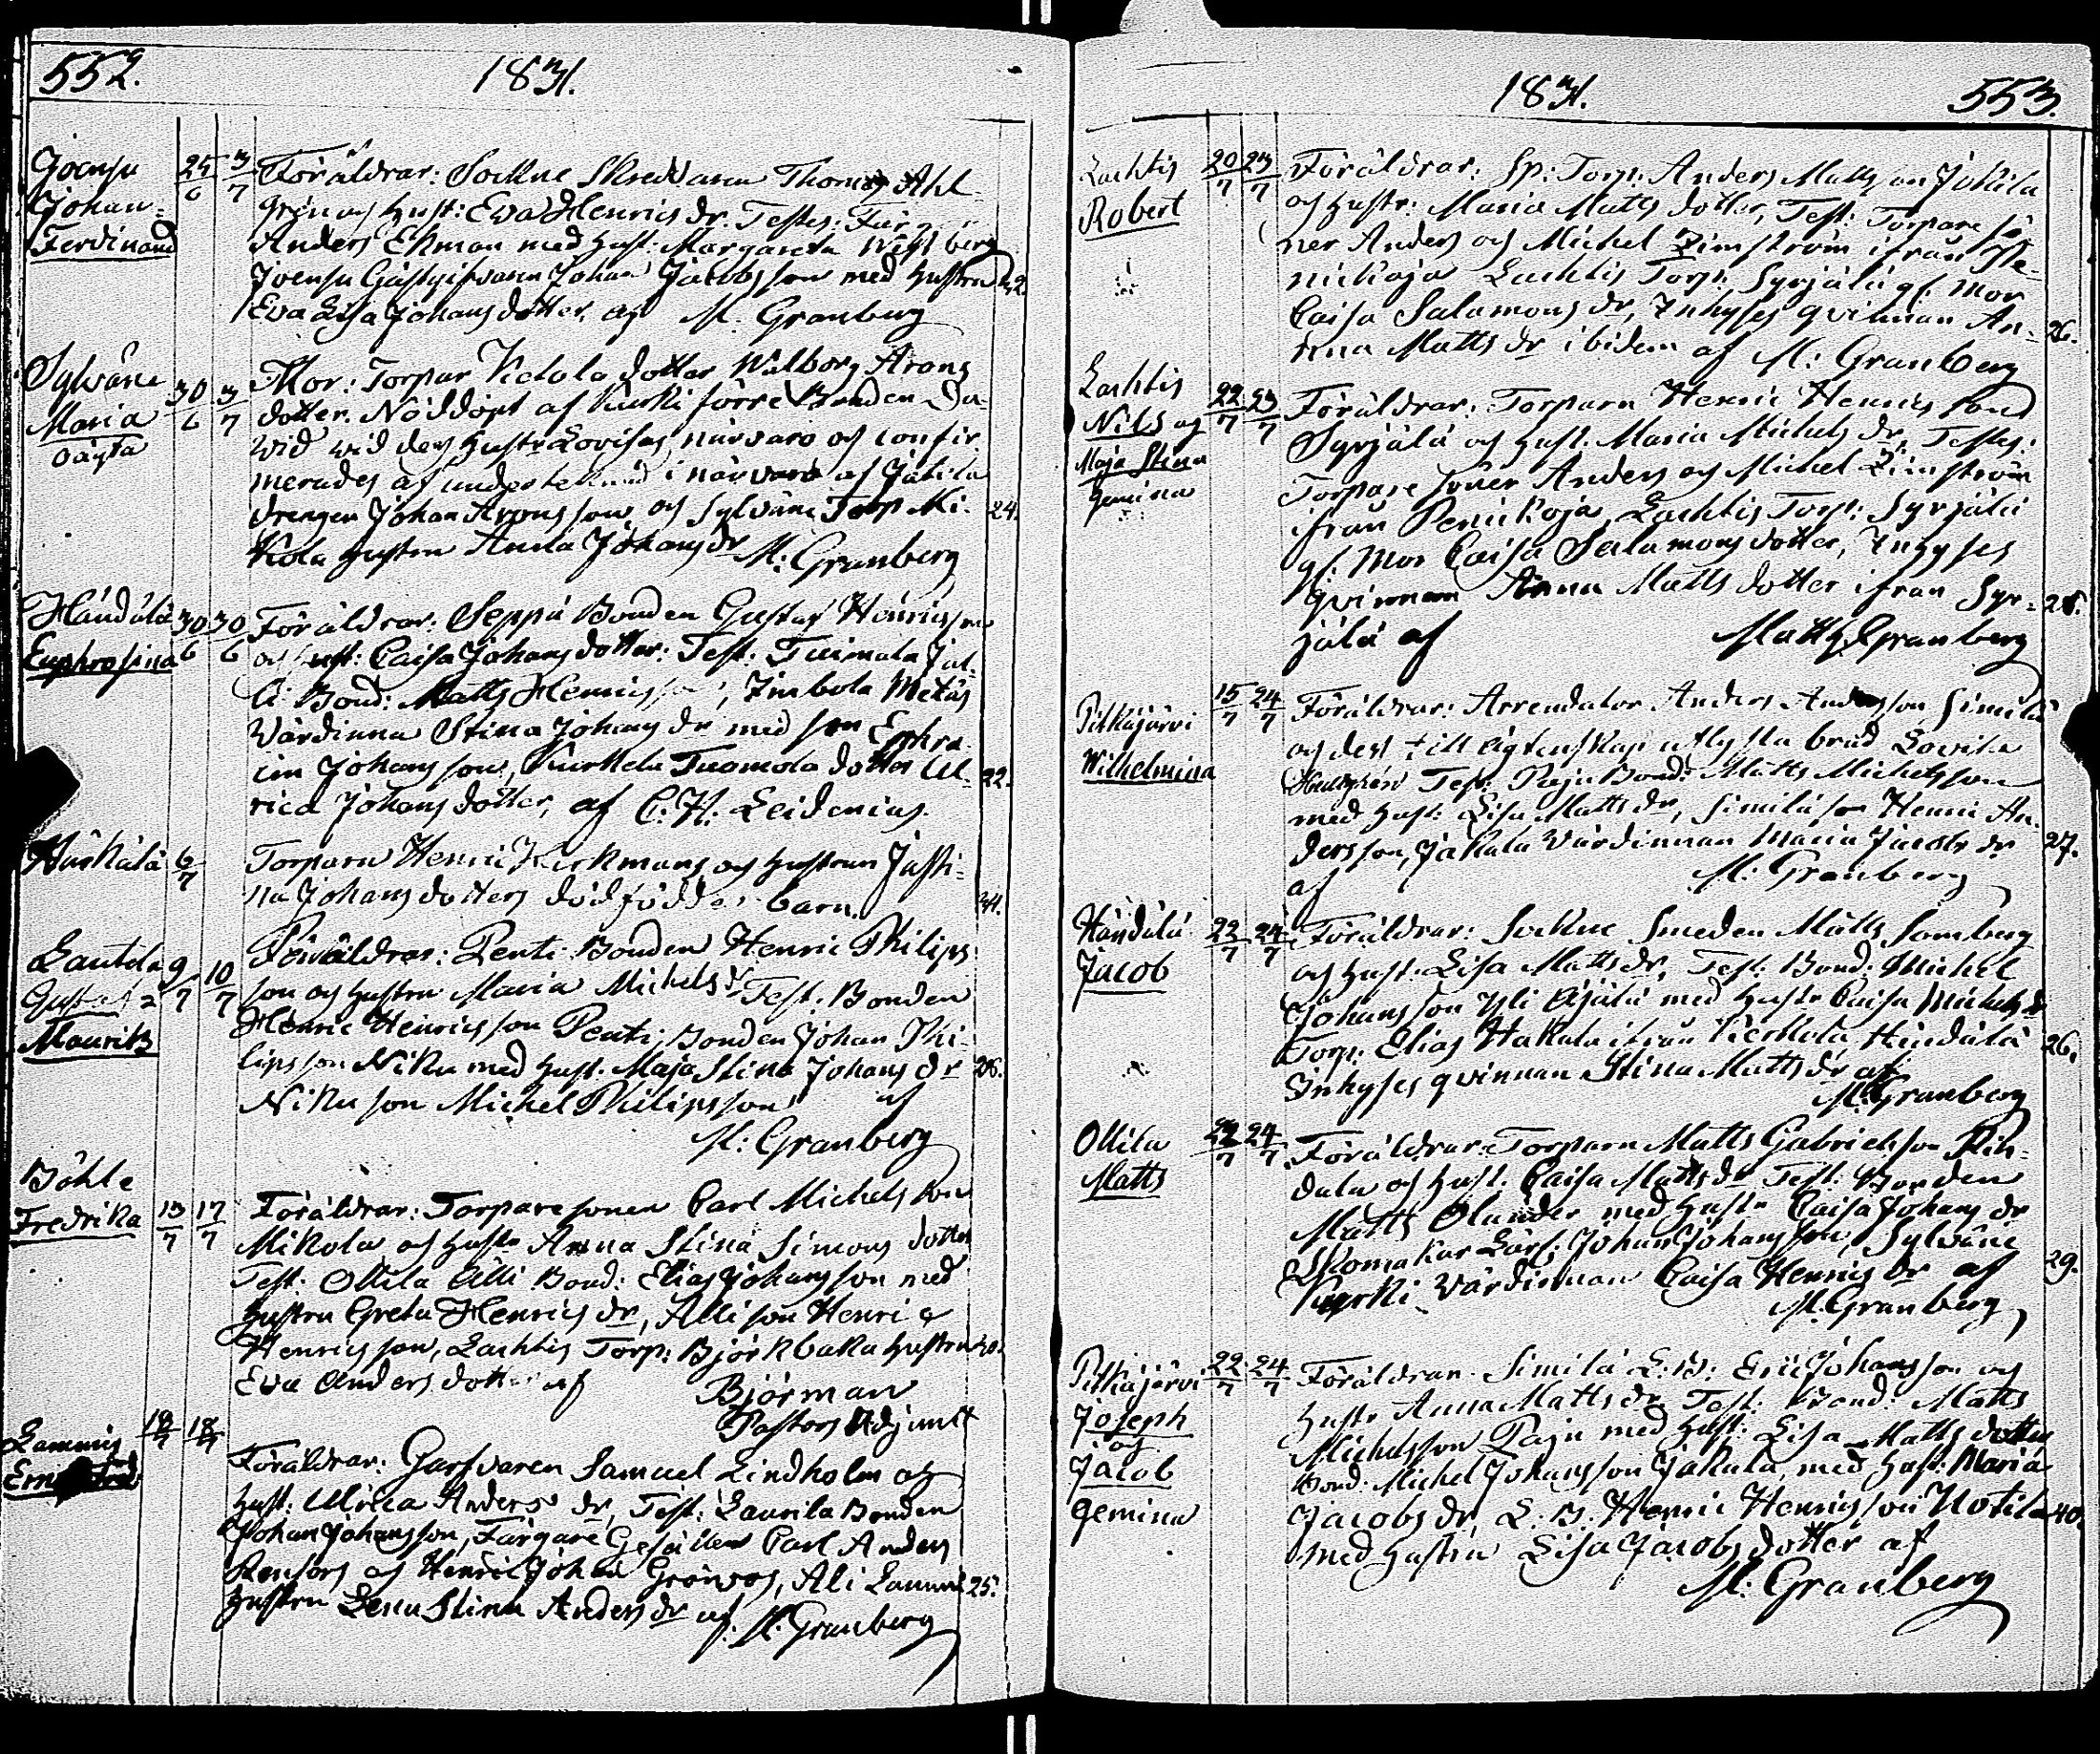 552.
1831.
Joensu
Johan
Ferdinand
25/6 3/7
Föräldrar: Sockne Skreddaren Thomas Ahl-
grén och Hust: Eva Henrics dr. Testes: Fär
Anders Ekman med Hust: Margareta
Joensu Gästgifvaren Johan Jacobsson med Hustru 42.
Eva Lisa Johans dotter. af M. Granberg
Sylväne
Maria
oägta
30/6 3/7
Mor: Torpar dotter Walborg Arons
dotter. Nöddöpt af Kurki förre Bonden Da-
wid wid des Hustr Lovisas närvaro och confir
merades af undertecknad i närvaro af Jutila
drengen Johan Aronsson och Sylväne Torp Mi- 24.
kola Hustru Anna Johans dr M: Granberg
Händälä
Euphrosina
30/6 30/6
Föräldrar: Seppä Bonden Gustaf Henricsson
och Hust: Caisa Johans dotter: Test: Tuimala
Bond: Matts Henricsson, Jmbola
Värdinna Stina Johans dr med son Ephra-
im Johansson, Kurkela Tuomola dotter Ul- 22.
rica Johans dotter, af C. H. Leidenius.
Härkälä
6/7
Torparn Henric Kirkmans och Hustrun Justi-
na Johans dotters dödfödde barn. 34.
Lautela
Gustaf
Maurits
9/7 10/7
Föräldrar: Penti Bonden Henric Philips
son och Hustru Maria Michels dr Test. Bonden
Henric Henricsson Penti, Bonden Johan Phi-
lipsson Niku med Hust. Maja Stina Johans dr 26.
Niku son Michel Philipsson af
M: Granberg
Böhle
Fredrika
13/7 17/7
Föräldrar: Torparesonen Carl Michelsson
Mikola och Hustr Anna Stina Simons dotter
Test: Ollila Alli Bond: Elias Johansson med
Hustru Greta Henrics dr, Alli son Henric
Henricsson, Lachtis Torp: Björkbaka Hustru 40.
Eva Anders dotter af Björman
Pastors Adjunct
Lammis
18/7 18/7
Föräldrar: Garfvaren Samuel Lindholm och
Hust: Ulrica Anders dr, Test: Laurila Bonden
Johan Johansson, Färgare Gesällen Carl Anders
Renfors och Henric Johan Grönroos, Ali Lammi 25.
Hustru Lena Stina Anders dr af M. Granberg
1831.
553.
Lachtis
Robert
20/7 23/7
Föräldrar: Sp: Torp: Anders Mattsson Jokila
och Hustr: Maria Matts dotter, Test: Torpare sö-
ner Anders och Michel Limström ifrån Pe-
nickoja Lachtis Torp: Syrjälä gl: Mor
Caisa Salamons dr, Inhyses qvinnan An- 26.
na Matts dr ibidem af M: Granberg
Lachtis
Nils og
Maja Stina
gemina
22/7 23/7
Föräldrar: Torparn Henric Henrics son
Syrjälä och Hust. Maria Michels dr, Testes:
Torpare söner Anders och Michel Limström
ifrån Penickoja, Lachtis Torp: Syrjälä
gl: Mor Caisa Salamons dotter, Inhyses
qvinnan Anna Matts dotter ifrån Syr- 28.
jälä af Matts Granberg
Pitkäjärvi
Wilhelmina
15/7 24/7
Föräldrar: Arrendator Anders Andersson Similä
och dess till ägtenskap utlysta brud Lovisa
Test: Paju Bond: Matts Michelsson
med Hust: Lisa Matts dr, Similä son Henric An-
dersson, Jakula Värdinnan Maria Jacobs dr 27.
af M: Granberg
Händälä
Jacob
22/7 24/7
Föräldrar: Sockne Smeden Matts Somberg
och Hust: Lisa Matts dr, Test: Bond: Michel
Johansson Yli Äijälä med Hustr Caisa Michels dr
Torp: Elias Hakala ifrån Kierkola Händälä 26.
Inhyses qvinnan Stina Matts dr af
M: Granberg
Ollila
Matts
22/7 24/7
Föräldrar: Torparn Matts Gabrielsson Rin-
dala och Hust. Caisa Matts dr Test: Bonden
Matts Olander med Hustr Caisa Johans dr
Skomakar Lärl: Johan Johansson, Sylväne 29.
Kurki Värdinnan Caisa Henrics dr af
M. Granberg
Pitkäjärvi
Joseph
og
Jacob
gemina
22/7 24/7
Föräldrar Similä L: B: Eric Johansson och
Hustr Anna Matts dr Test: Bond: Matts
Michelsson Paju med Hust: Lisa Matts dotter
Bond: Michel Johansson Jakula, med Hust: Maria
Jacobs dr L. B. Henric Henricsson Uotila 40.
med Hustru Lisa Jacobs dotter af
M: Granberg